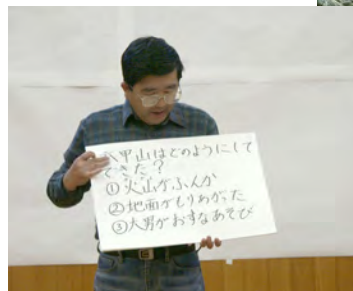 六甲山はどのようにして
できた?
①火山がふんか
②地面がもりあがった
③大男がおすなあそび